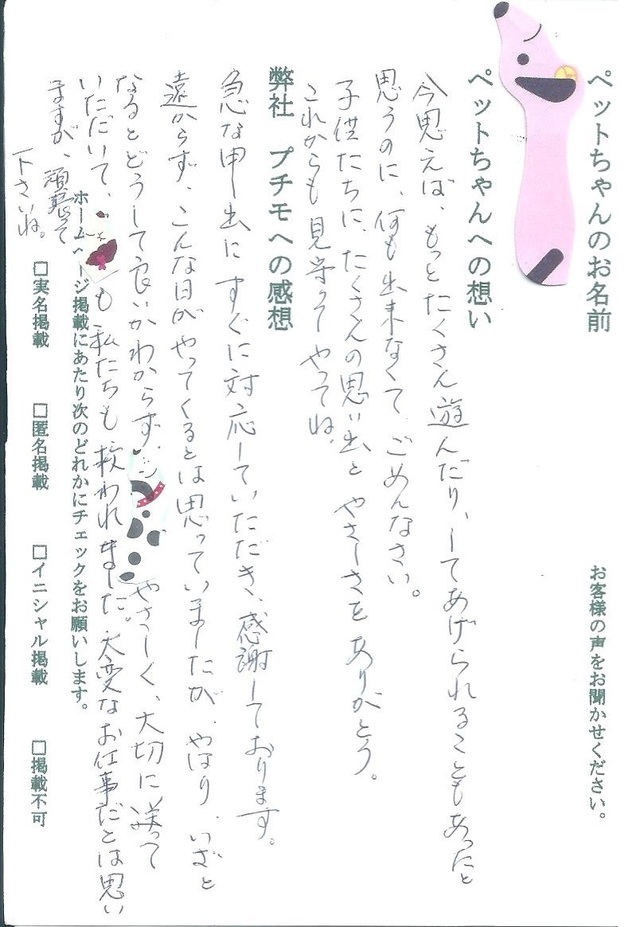 お客様の声をお聞かせください。
ペットちゃんのお名前
ペットちゃんへの想い
今思えば、もっとたくさん遊んだり、してあげられることもあったと
思うのに、何も出来なくて、ごめんなさい。
子供たちに、たくさんの思い出と やさしさを ありがとう。
これからも見守ってやってね。
弊社 プチモへの感想
急な申し出に すぐに対応していただき、感謝しております。
遠からず、こんな日がやってくるとは思っていましたが、やはり、いざと
なるとどうして良いかわからず、 やさしく、大切に送って
いただいて、 も 私たちも救われました。大変なお仕事だとは思い
ますが、頑張って
下さいね。
ホームページ掲載にあたり次のどれかにチェックをお願いします。
□実名掲載 □匿名掲載 □イニシャル掲載 □掲載不可